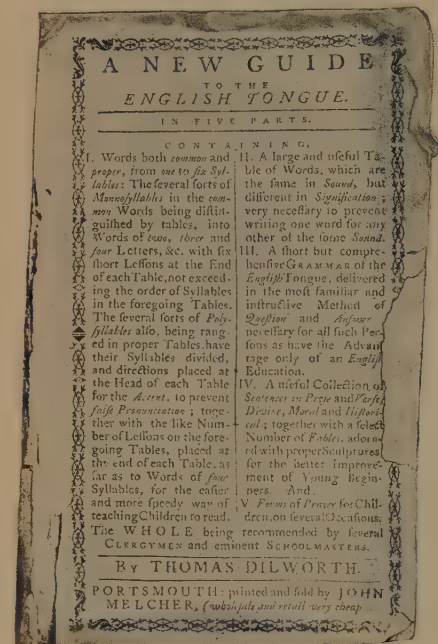 A NEW GUIDE
TO THE
ENGLISH TONGUE.
IN FIVE PARTS.
CONTAINING,
I. Words both common and
proper, from one to six Syl-
lables: The several sorts of
Monosyllables in the com-
mon Words being distin-
guished by tables, into
Words of two, three and
four Letters, &c. with six
short Lessons at the End
of each Table, not exceed-
ing the order of Syllables
in the foregoing Tables.
The several sorts of Poly-
syllables also, being rang-
ed in proper Tables, have
their Syllables divided,
and directions placed at
the Head of each Table
for the Accent, to prevent
false Pronunciation; toge-
ther with the like Num-
ber of Lessons on the fore-
going Tables, placed at
the end of each Table, as
far as to Words of four
Syllables, for the easier
and more speedy way of
teaching Children to read.
II. A large and useful Ta-
ble of Words, which are
the same in Sound, but
different in Signification;
very necessary to prevent
writing one word for any
other of the same Sound.
III. A short but compre-
hensive GRAMMAR of the
English Tongue, delivered
in the most familiar and
instructive Method of
Question and Answer
necessary for all such Per-
sons as have the Advan
tage only of an English
Education.
IV. A useful Collection of
Sentences in Prose and Verse,
Divine, Moral and Histori-
cal; together with a select
Number of Fables, adorn-
ed with proper Sculptures
for the better Improve-
ment of Young Begin-
ners. And
V Forms of Prayer for Chil-
dren, on several Occasions.
The WHOLE being recommended by several
CLERGYMEN and eminent SCHOOLMASTERS.
BY THOMAS DILWORTH.
PORTSMOUTH: printed and sold by JOHN
MELCHER, (wholesale and retail very cheap